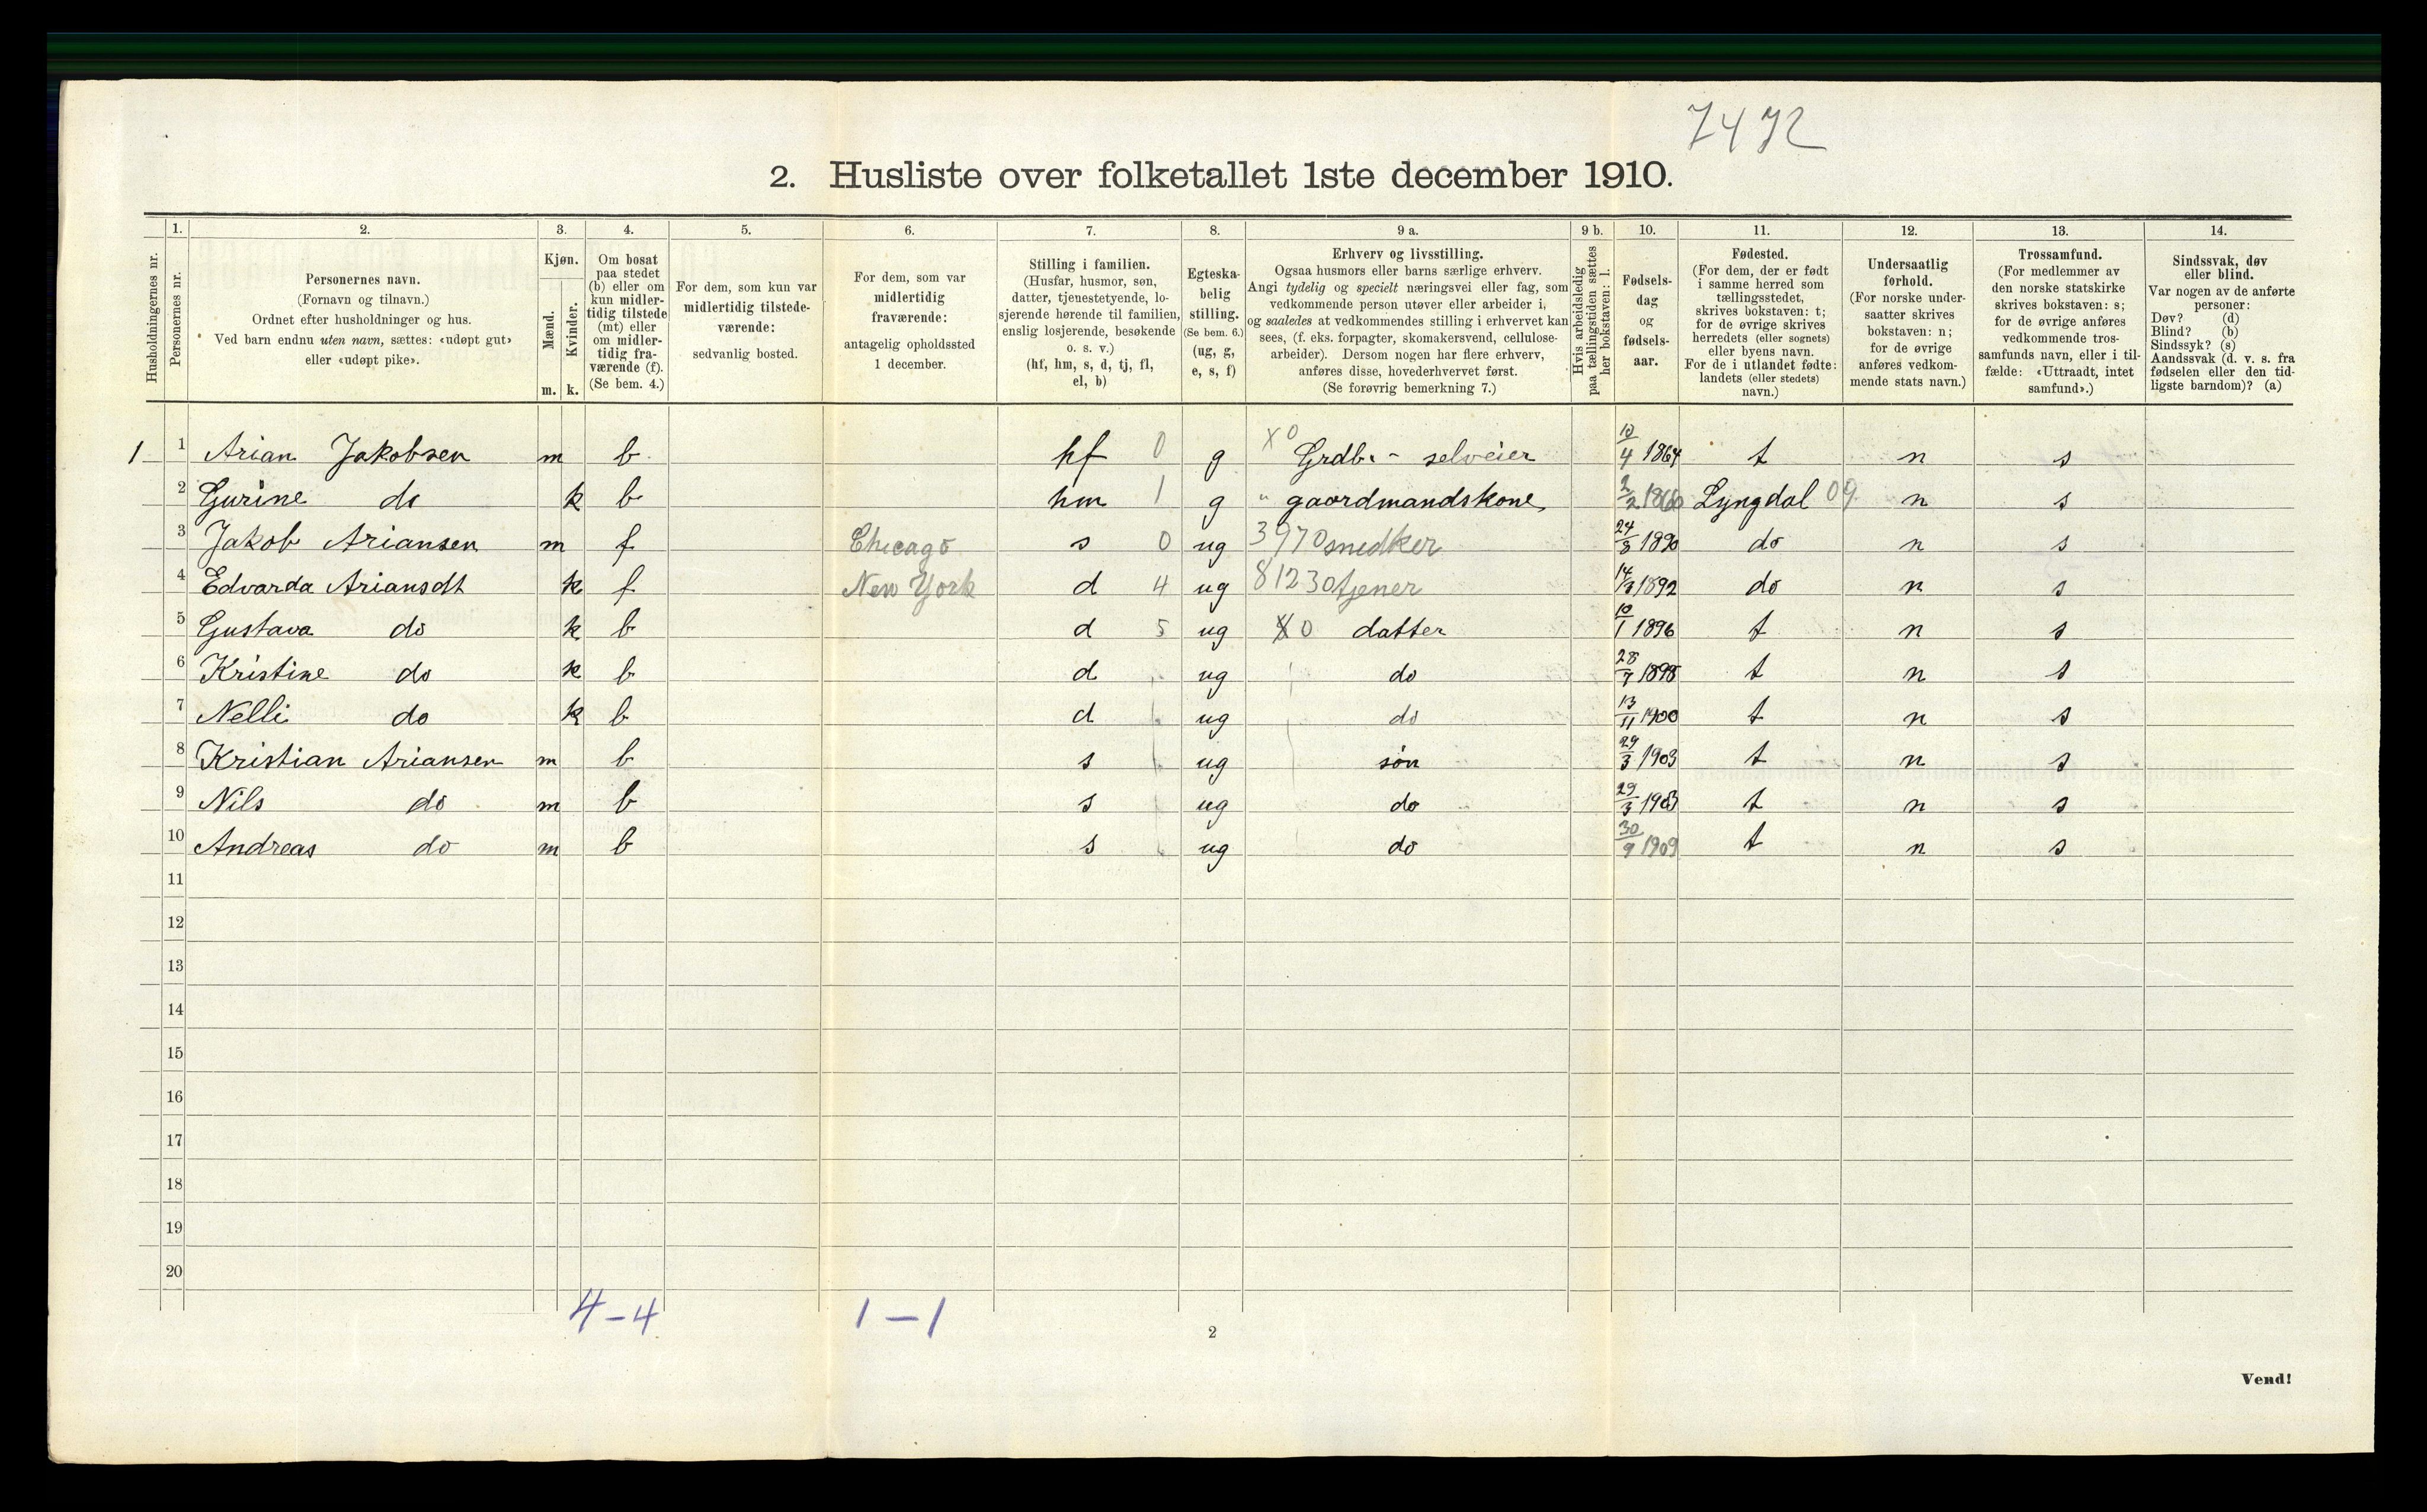 7472
2. Husliste over folketallet 1ste december 1910.
1. 2. 3. 4. 5. 6. 7. 8. 9 a. 9 b. 10. 11. 12. 13. 14.
Husholdningernes nr.
Personernes nr.
Personernes navn.
(Fornavn og tilnavn.)
Ordnet efter husholdninger og hus.
* Ved barn endnu uten navn, sættes: «udøpt gut»
eller «udøpt pike».
Kjøn.
Mænd.
Kvinder.
m. k.
Om bosat
paa stedet
(b) eller om
kun midler-
tidig tilstede
(mt) eller
om midler-
tidig fra-
værende (f).
(Se bem. 4.)
For dem, som kun var
midlertidig tilstede-
værende:
sedvanlig bosted.
For dem, som var
midlertidig
fraværende:
antagelig opholdssted
1 december.
Stilling i familien.
(Husfar, husmor, søn,
datter, tjenestetyende, lo-
sjerende hørende til familien,
enslig losjerende, besøkende
o. s. v.)
(hf, hm, s, d, tj, fl,
el, b)
Egteska-
belig
stilling.
(Se bem. 6.)
(ug, g,
e, s, f)
Erhverv og livsstilling.
Ogsaa husmors eller barns særlige erhverv.
Angi tydelig og specielt næringsvei eller fag, som
vedkommende person utøver eller arbeider i,
og saaledes at vedkommendes stilling i erhvervet kan
sees, (f. eks. forpagter, skomakersvend, cellulose-
arbeider). Dersom nogen har flere erhverv,
anføres disse, hovederhvervet først.
(Se forøvrig bemerkning 7.)
Hvis arbeidsledig
paa tællingstiden sættes
her bokstaven: l.
Fødsels-
dag
og
fødsels-
aar.
Fødested.
(For dem, der er født
i samme herred som
tællingsstedet,
skrives bokstaven: t;
for de øvrige skrives
herredets (eller sognets)
eller byens navn.
For de i utlandet fødte:
landets (eller stedets)
navn.)
Undersaatlig
forhold.
(For norske under-
saatter skrives
bokstaven: n;
for de øvrige
anføres vedkom-
mende stats navn.)
Trossamfund.
(For medlemmer av
den norske statskirke
skrives bokstaven: s;
for de øvrige anføres
vedkommende tros-
samfunds navn, eller i til-
fælde: «Uttraadt, intet
samfund».)
Sindssvak, døv
eller blind.
Var nogen av de anførte
personer:
Døv? (d)
Blind? (b)
Sindssyk? (s)
Aandssvak (d. v. s. fra
fødselen eller den tid-
ligste barndom)? (a)
1 1 Arian Jakobsen m b hf 0 g x0 Grdbr - selveier 10/4 1864 t n s
2 Gurine do k b hm 1 g " gaardmandskone 2/2 1860 Lyngdal 09 n s
3 Jakob Ariansen m f Chicago s 0 ug 3970 snedker 24/8 1890 do n s
4 Edvarda Ariansdt k f New York d 4 ug 81230 tjener 14/3 1892 do n s
5 Gustava do k b d 5 ug x0 datter 10/1 1896 t n s
6 Kristine do k b d ug do 28/7 1898 t n s
7 Nelli do k b d ug do 13/11 1900 t n s
8 Kristian Ariansen m b s ug søn 29/3 1903 t n s
9 Nils do m b s ug do 29/3 1903 t n s
10 Andreas do m b s ug do 30/9 1909 t n s
11
12
13
14
15
16
17
18
19
20
4-4 1-1
2
Vend!